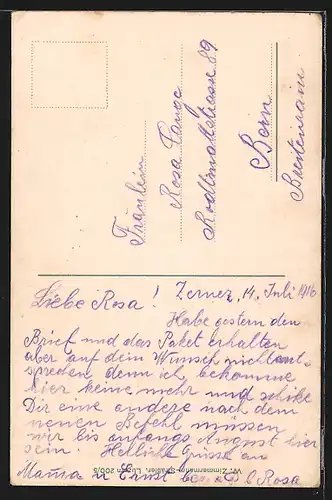 Fräulein
Rosa Lange
Rodtmattstrasse 89
Bern
Liebe Rosa! Zernez, 14. Juli 1916
Habe gestern den
Brief und das Paket erhalten
aber auf dein Wunsch nicht ent-
sprechen denn ich bekomme
hier keine mehr und schike
Dir eine andere nach dem
neuen Befehl müssen
wir bis anfangs August hier
sein. Herliche Grüsse an
Mama u Ernst bes a d l Rosa